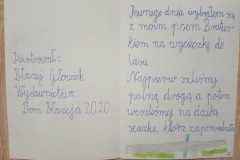 Ilustrował:
Błażej Głowiak
Wydawnictwo:
Dom Błażeja 2020
Pewnego dnia wybrałem się
z moim psem Brutus-
kiem na wycieczkę do
lasu.
Najpierw szliśmy
polną drogą a potem
weszliśmy na dziką
ścieżkę, która zaprowadziła